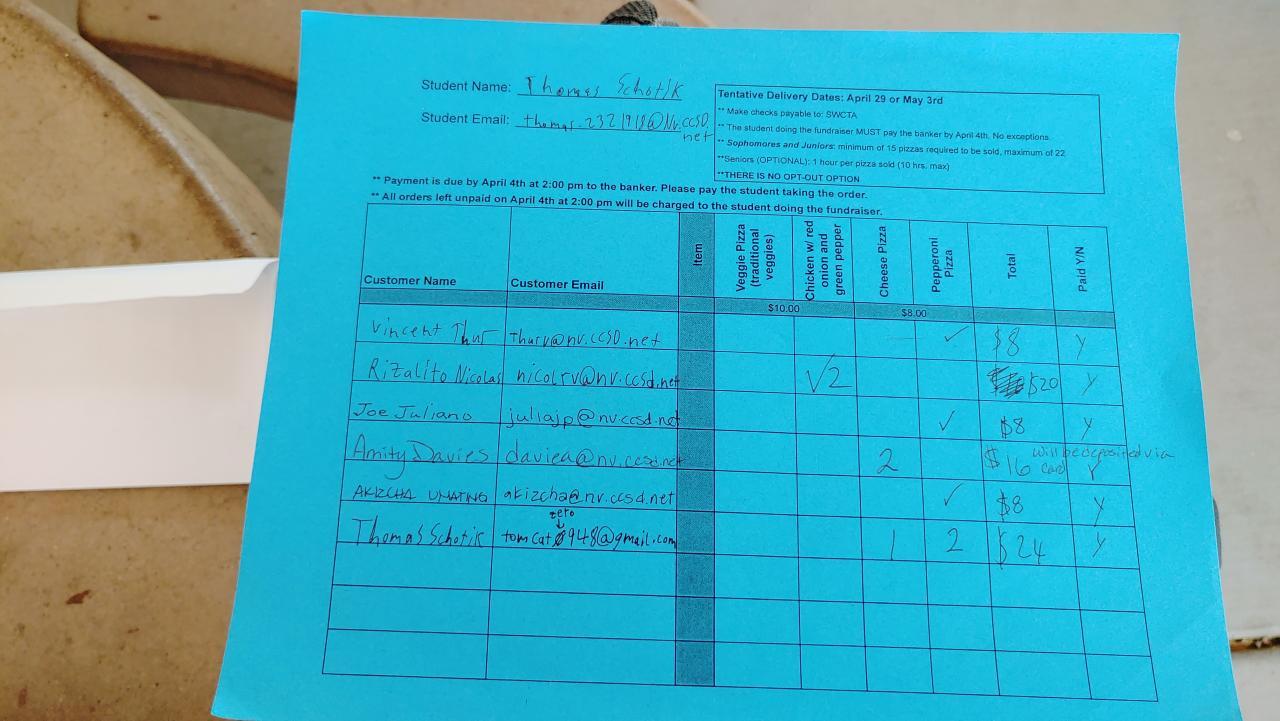 Student Name: Thomas Schotik
Student Email: thomas.2321918@Nv.ccsd.
net
Tentative Delivery Dates: April 29 or May 3rd
** Make checks payable to: SWCTA
** The student doing the fundraiser MUST pay the banker by April 4th. No exceptions.
** Sophomores and Juniors: minimum of 15 pizzas required to be sold, maximum of 22
**Seniors (OPTIONAL): 1 hour per pizza sold (10 hrs. max)
**THERE IS NO OPT-OUT OPTION
** Payment is due by April 4th at 2:00 pm to the banker. Please pay the student taking the order.
** All orders left unpaid on April 4th at 2:00 pm will be charged to the student doing the fundraiser.
Customer Name Customer Email Item Veggie Pizza (traditional veggies) Chicken w/ red onion and green pepper Cheese Pizza Pepperoni Pizza Total Paid Y/N
$10.00 $8.00
Vincent Thur thurv@nv.ccsd.net ✓ $8 Y
Rizalito Nicolas nicolrv@nv.ccsd.net √2 $20 Y
Joe Juliano juliajp@nv.ccsd.net ✓ $8 Y
Amity Davies daviea@nv.ccsd.net 2 $16 will be deposited via card Y
AKIZCHA UMATING akizcha@nv.ccsd.net ✓ $8 Y
zero
Thomas Schotik tomcat0948@gmail.com 1 2 $24 Y